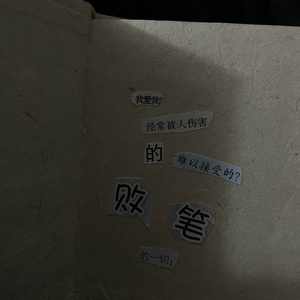 我爱我
经常被人伤害
的
难以接受的?
败笔
的一切。